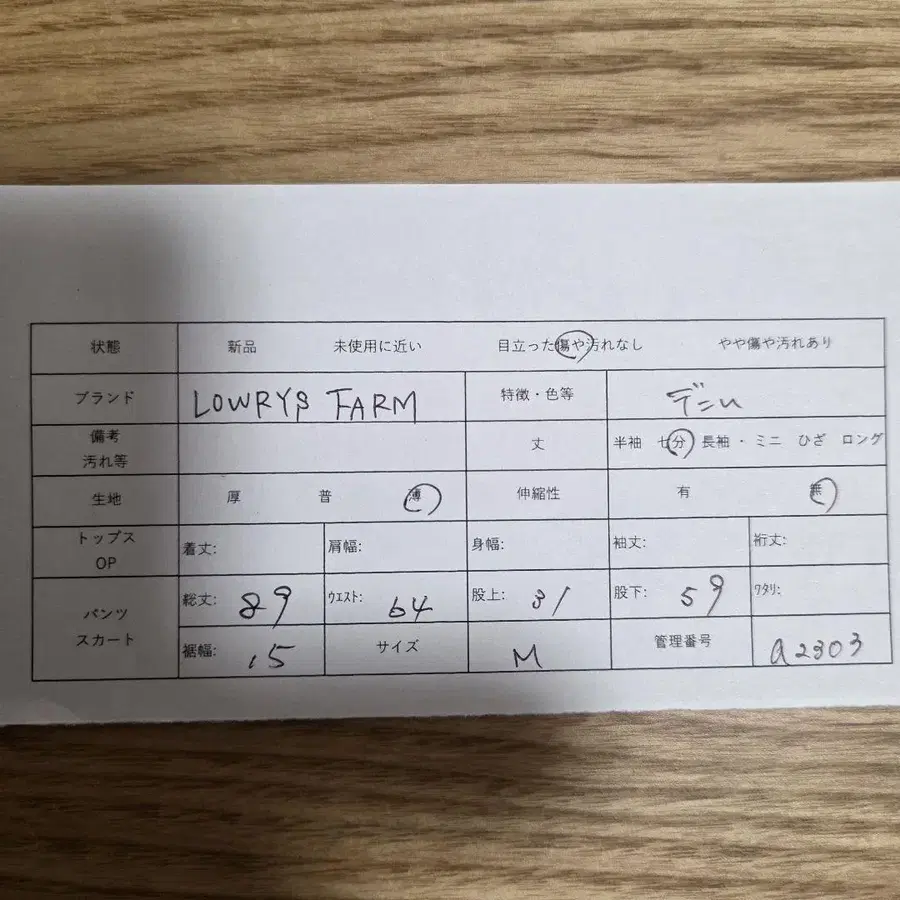 状態 新品 未使用に近い 目立った傷や汚れなし やや傷や汚れあり
ブランド LOWRYS FARM 特徴・色等 デニム
備考 汚れ等 丈 半袖 七分 長袖・ミニ ひざ ロング
生地 厚 普 薄 伸縮性 有 無
トップス OP 着丈: 肩幅: 身幅: 袖丈: 裄丈:
パンツ スカート 総丈: 89 ウエスト: 64 股上: 31 股下: 59 ワタリ:
裾幅: 15 サイズ M 管理番号 a2303